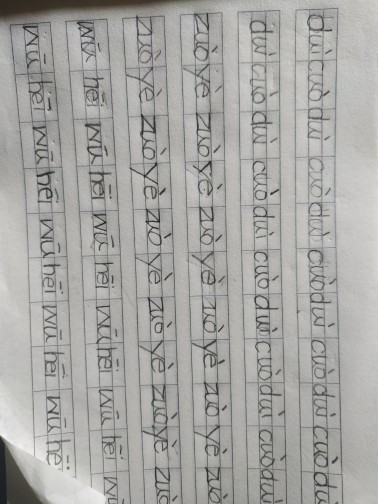 duì cuò duì cuò duì cuò duì cuò duì cuò duì
duì cuò duì cuò duì cuò duì cuò duì cuò duì
zuò yè zuò yè zuò yè zuò yè zuò yè zuò
zuò yè zuò yè zuò yè zuò yè zuò yè zuò
wū hēi wū hēi wū hēi wū hēi wū hēi w
wū hēi wū hēi wū hēi wū hēi wū hēi wū hēi